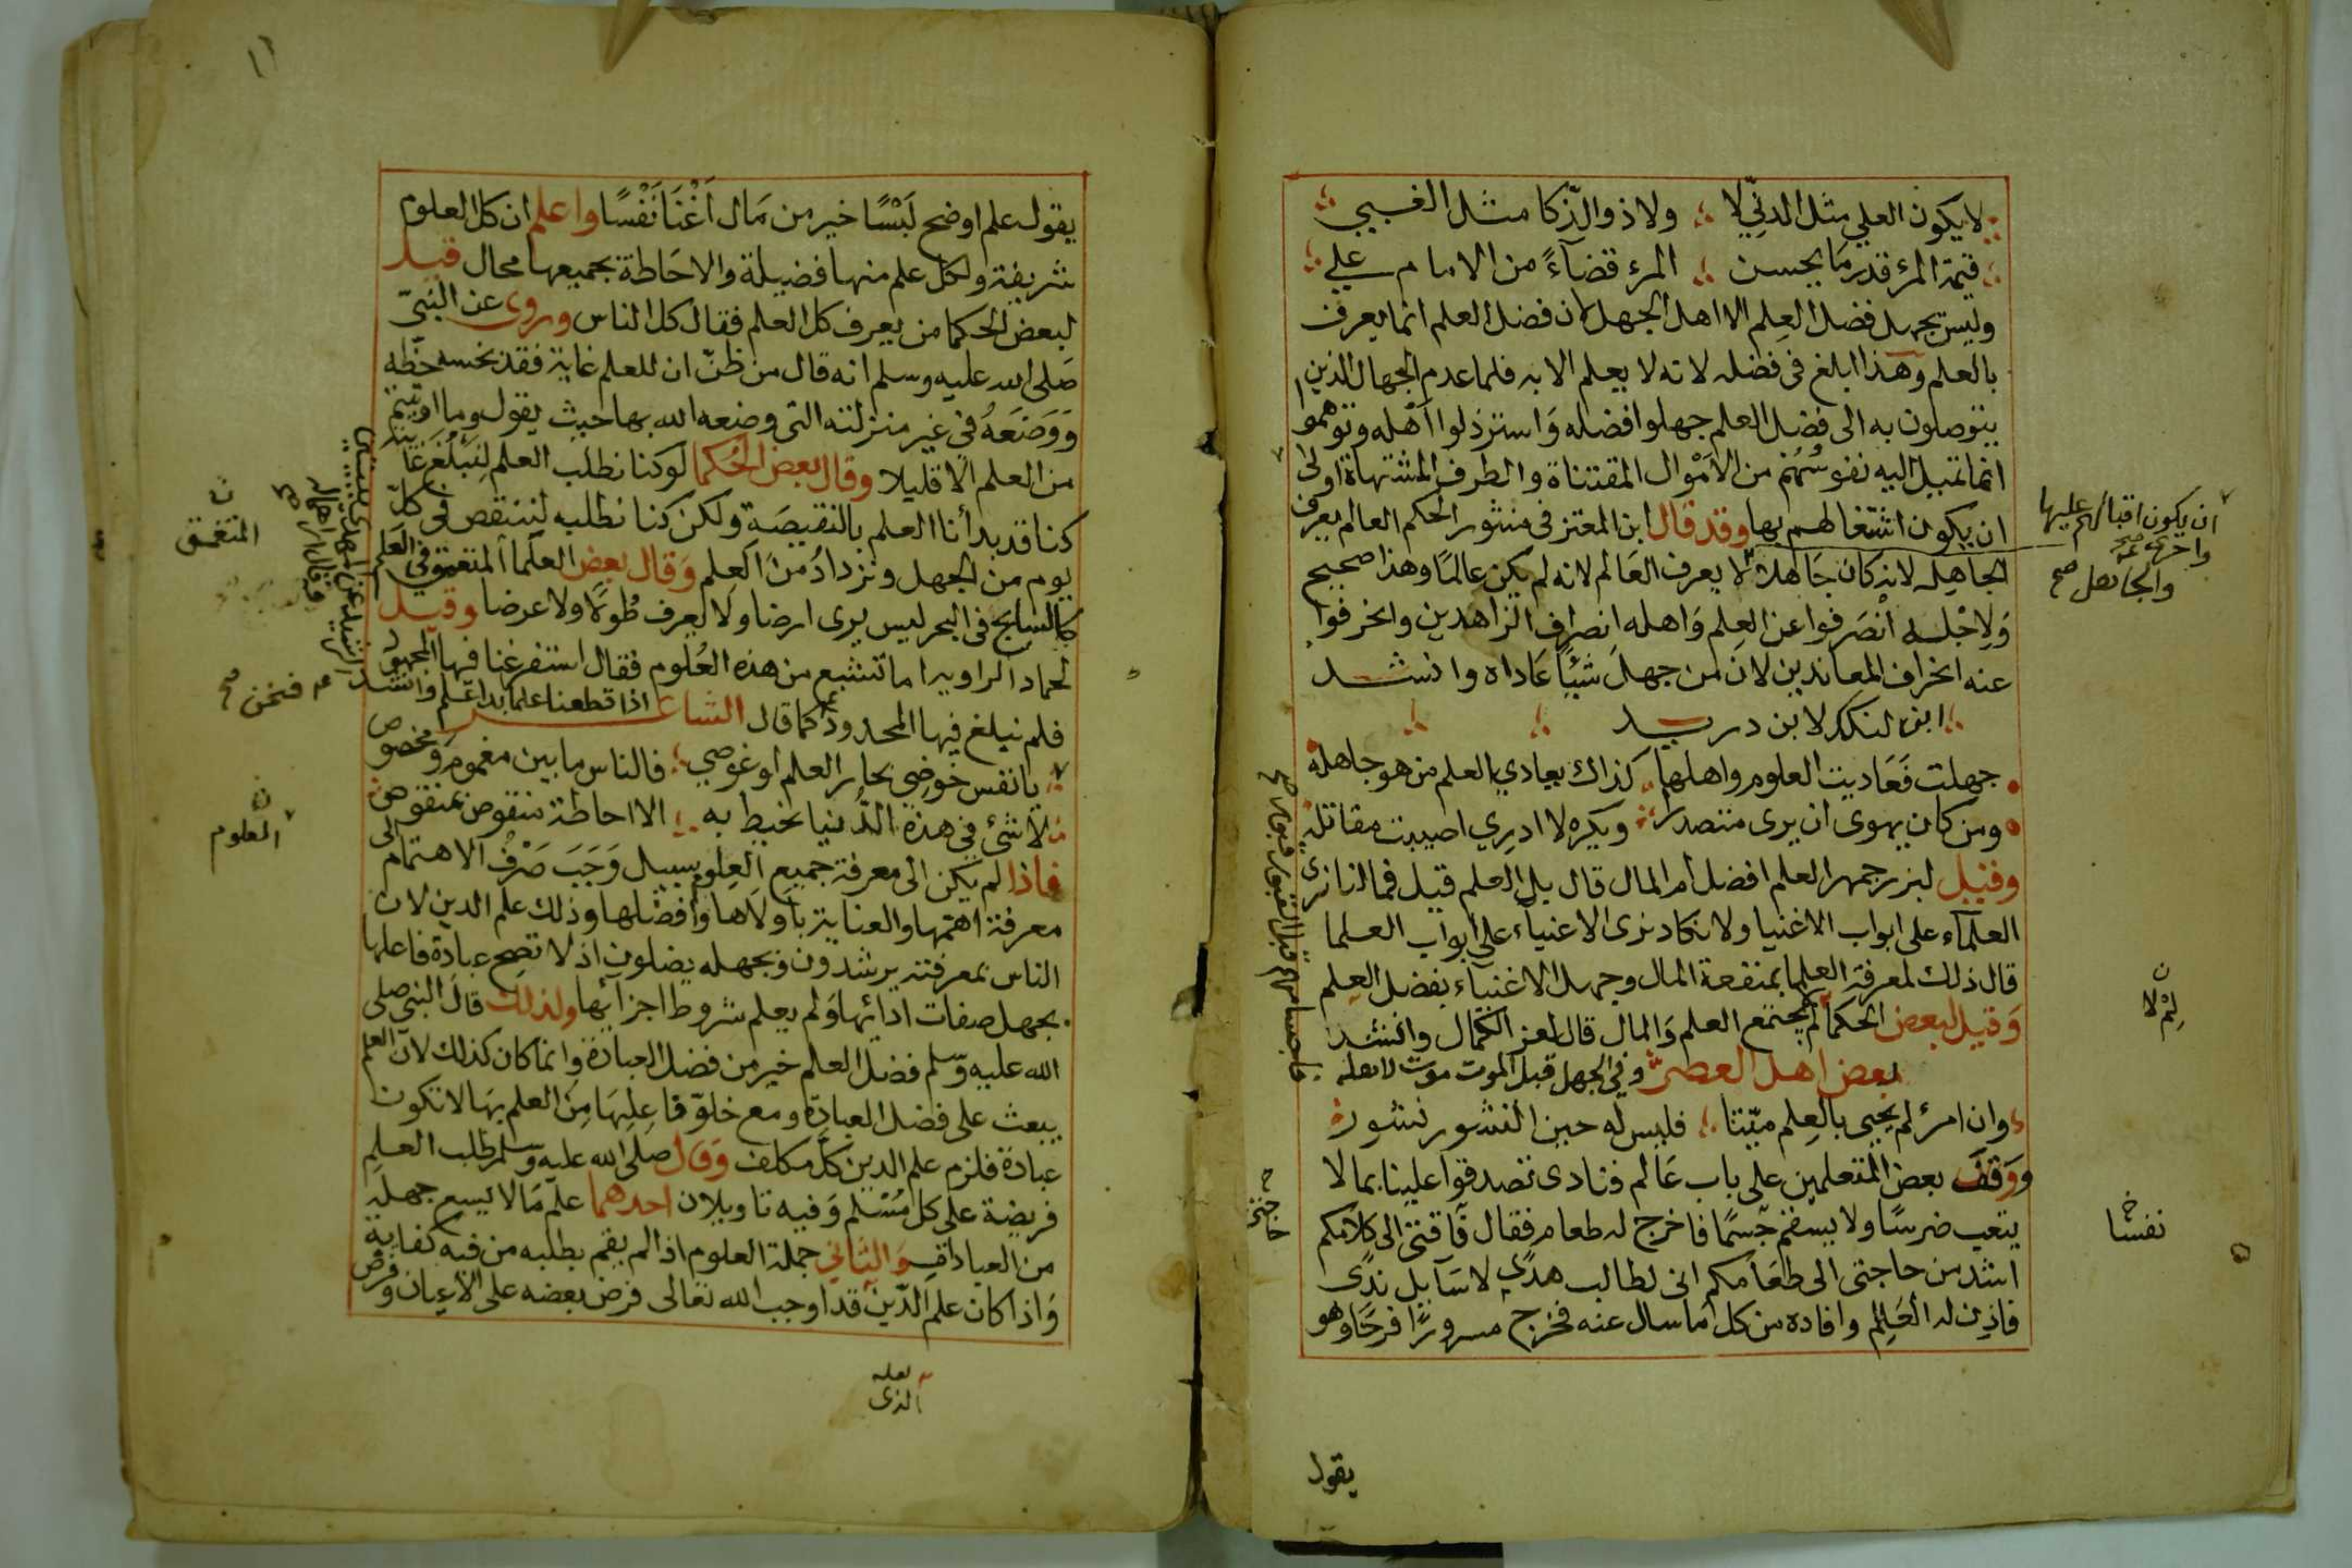 لا يكون العلي مثل الدنّي لا ولا ذو الذّكا مثل الغبيي
قيمة المرء قدر ما يحسن المرء قضآءً من الامام علي
وليس يجهل فضل العِلم الا اهل الجهل لان فضل العلم انما يعرف
بالعلم وهذا ابلغ في فضله لانه لا يعلم الا به فلما عدم الجهال الذين
يتوصلون به الى فضل العلم جهلوا فضله وَاسترذلوا اهْله وتوهموا
انما تميل اليه نفوسُهُمْ من الاَمْوال المقتناة والطرف المشتهاة اولى
ان يكون اشتغالهم بها وقد قال ابن المعتز في منثور الحكم العالم يعرف
الجاهِل لانه كان جَاهلا لا يعرف العَالم لانه لم يكن عالمًا وهذا صحيح
وَلاِجْله انْصَرفوا عن العِلم وَاهله انصراف الزاهدين وانحرفوا
عنه انحراف المعاندين لان من جهل شيئًا عَاداه وانشد
ابن لنكك لابن دريد
جهلت فَعَاديت العلوم واهلها كذاك يعادي العلم من هو جاهله
ومن كان يهوى ان يرى متصدرا ويكره لا ادرِي اصيبت مقاتله
وقيل لبزرجمهر العلم افضل ام المال قال بل العلم قيل فما لنا نرى
العلمآء على ابواب الاغنيا ولا نكاد نرى الاغنيآء على ابواب العلما
قال ذلك لمعرفة العلما بمنفعة المال وجهل الاغنيآء بفضل العِلم
وَقيل لبعض الحكمآ لم يجتمع العلم وَالمال قال لعز الكمال وانشد
بعض اهل العصر وفي الجهل قبل الموت موت لاهله
وان امرء لم يحيى بالعِلم ميّتا فليس له حين النشور نشور
ووَقف بعض المتعلمين على باب عَالم فنادى تصدقوا علينا بما لا
يتعب ضرسًا ولا يسقم جسمًا فاخرج له طعام فقال فآقتى الى كلامكم
اشد من حاجتى الى طعَامكم انى لطالب هدًى لا سَآيل ندًى
فاذِن له العَالِم وافاده من كل ما سال عنه فخرج مسرورًا فرحًا وهو
ان يكون اقبالهم عليها
واحرى
والجاهل صح
لِمْ لا
نفسا
حاجتى
فاجسامهم قبل القبور قبور صح
يقول
١١
يقول علم اوضح لَبْسًا خير من مَال اَغْنَا نَفْسًا واعلم ان كل العلوم
شريفة ولكل علم منها فضيلة والاحَاطة بجميعها محال قيل
لبعض الحكما من يعرف كل العلم فقال كل الناس وروى عن النبيّ
صَلى الله عليه وسلم انه قال من ظنّ ان للعلم غاية فقد بخسه حظّه
وَوَضَعَهُ في غير منزلته التى وضعه الله بها حيث يقول وما اوتيتم
من العلم الا قليلا وقال بعض الحُكما لوكنا نطلب العلم لِنَبلُغَ غَايته
كنا قد بدأنا العلم بالنقيصَة ولكن كنا نطلبه لننتقص في كلّ
يوم من الجهل ونزدادُ منَ العِلم وَقال بعض العلما المتعمق في العَلم
كالسابح في البحر ليس يرى ارضا ولا يعرف طُولاً ولا عرضا وقيل
لحماد الراويه اما تشبع من هذه العُلوم فقال استفرغنا فيها المجهود
فلم نبلغ فيها المحدود كما قال الشاعر اذا قطعنا علما بدا علم وانشد
يا نفس خوضِى بحار العلم او غوصي فالناس ما بين مغموم ومخصوص
لا شئ في هذه الدُّنيا نحيط به الا احاطة منقوص بمنقوص
فاذا لم يكن الى معرفة جميع العِلوم سبيل وَجَبَ صَرْفُ الاهتمام الى
معرفة اهمّها والعناية باولاها وافضلها وذلك علم الدين لان
الناس بمعرفته يرشدون وبجهله يضلون اذ لا تصح عبادة فاعلها
بجهل صفات ادائها وَلم يعلم شروط اجزآئها ولذلك قال النبي صلى
الله عليه وسّلم فضل العلم خير من فضل العبادة وانما كان كذلك لان العلم
يبعث على فضل العبادة ومع خلوّ فاعِلِهَا مِن العلم بهَا لا تكون
عبادة فلزم علم الدين كلَّ مكلف وَقال صلى الله عليه وسلم طلب العلِم
فريضة على كل مُسْلم وَفيه تاويلان احدهما علم مَا لا يسع جهله
من العبادات وَالثاني جملة العلوم اذا لم يقم بطلبه من فيه كفاية
وَاذا كان علم الدّين قد اوجب الله تعالى فرض بعضه على الاعيان وفرض
المتعمق
فنحن صح
العلوم
الرشيد عن المهدى بيتين
فقال
لعله
الذى